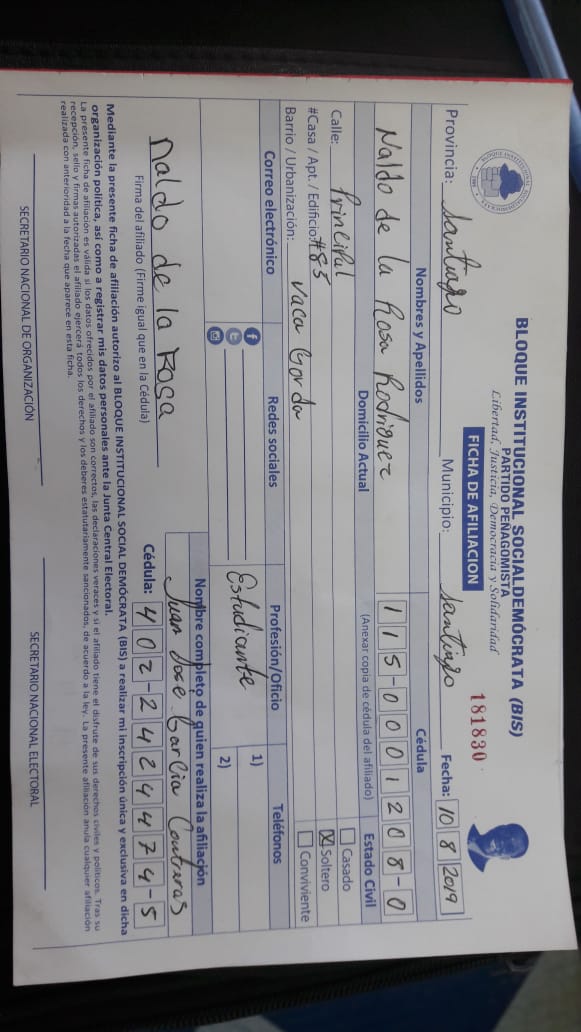 BLOQUE INSTITUCIONAL SOCIALDEMÓCRATA (BIS)
PARTIDO PEÑAGOMISTA
Libertad, Justicia, Democracia y Solidaridad
FICHA DE AFILIACION
181830
Provincia: Santiago Municipio: Santiago Fecha: 10 8 2019
Nombres y Apellidos Cédula
Naldo de la Rosa Rodriguez 115-0001208-0
Domicilio Actual (Anexar copia de cédula del afiliado) Estado Civil
Calle: Principal Casado
#Casa / Apt. / Edificio: #85 Soltero
Barrio / Urbanización: Vaca Gorda Conviviente
Correo electrónico Redes sociales Profesión/Oficio Teléfonos
Estudiante 1)
2)
Nombre completo de quien realiza la afiliación
Juan Jose Garcia Contreras
naldo de la Rosa
Firma del afiliado (Firme igual que en la Cédula) Cédula: 402-2424474-5
Mediante la presente ficha de afiliación autorizo al BLOQUE INSTITUCIONAL SOCIAL DEMÓCRATA (BIS) a realizar mi inscripción única y exclusiva en dicha
organización política, así como a registrar mis datos personales ante la Junta Central Electoral.
La presente ficha de afiliación es válida si los datos ofrecidos por el afiliado son correctos, las declaraciones veraces y si el afiliado tiene el disfrute de sus derechos civiles y políticos. Tras su
recepción, sello y firmas autorizadas el afiliado ejercerá todos los derechos y los deberes estatutariamente sancionados, de acuerdo a la ley. La presente afiliación anula cualquier afiliación
realizada con anterioridad a la fecha que aparece en esta ficha.
SECRETARIO NACIONAL DE ORGANIZACIÓN SECRETARIO NACIONAL ELECTORAL